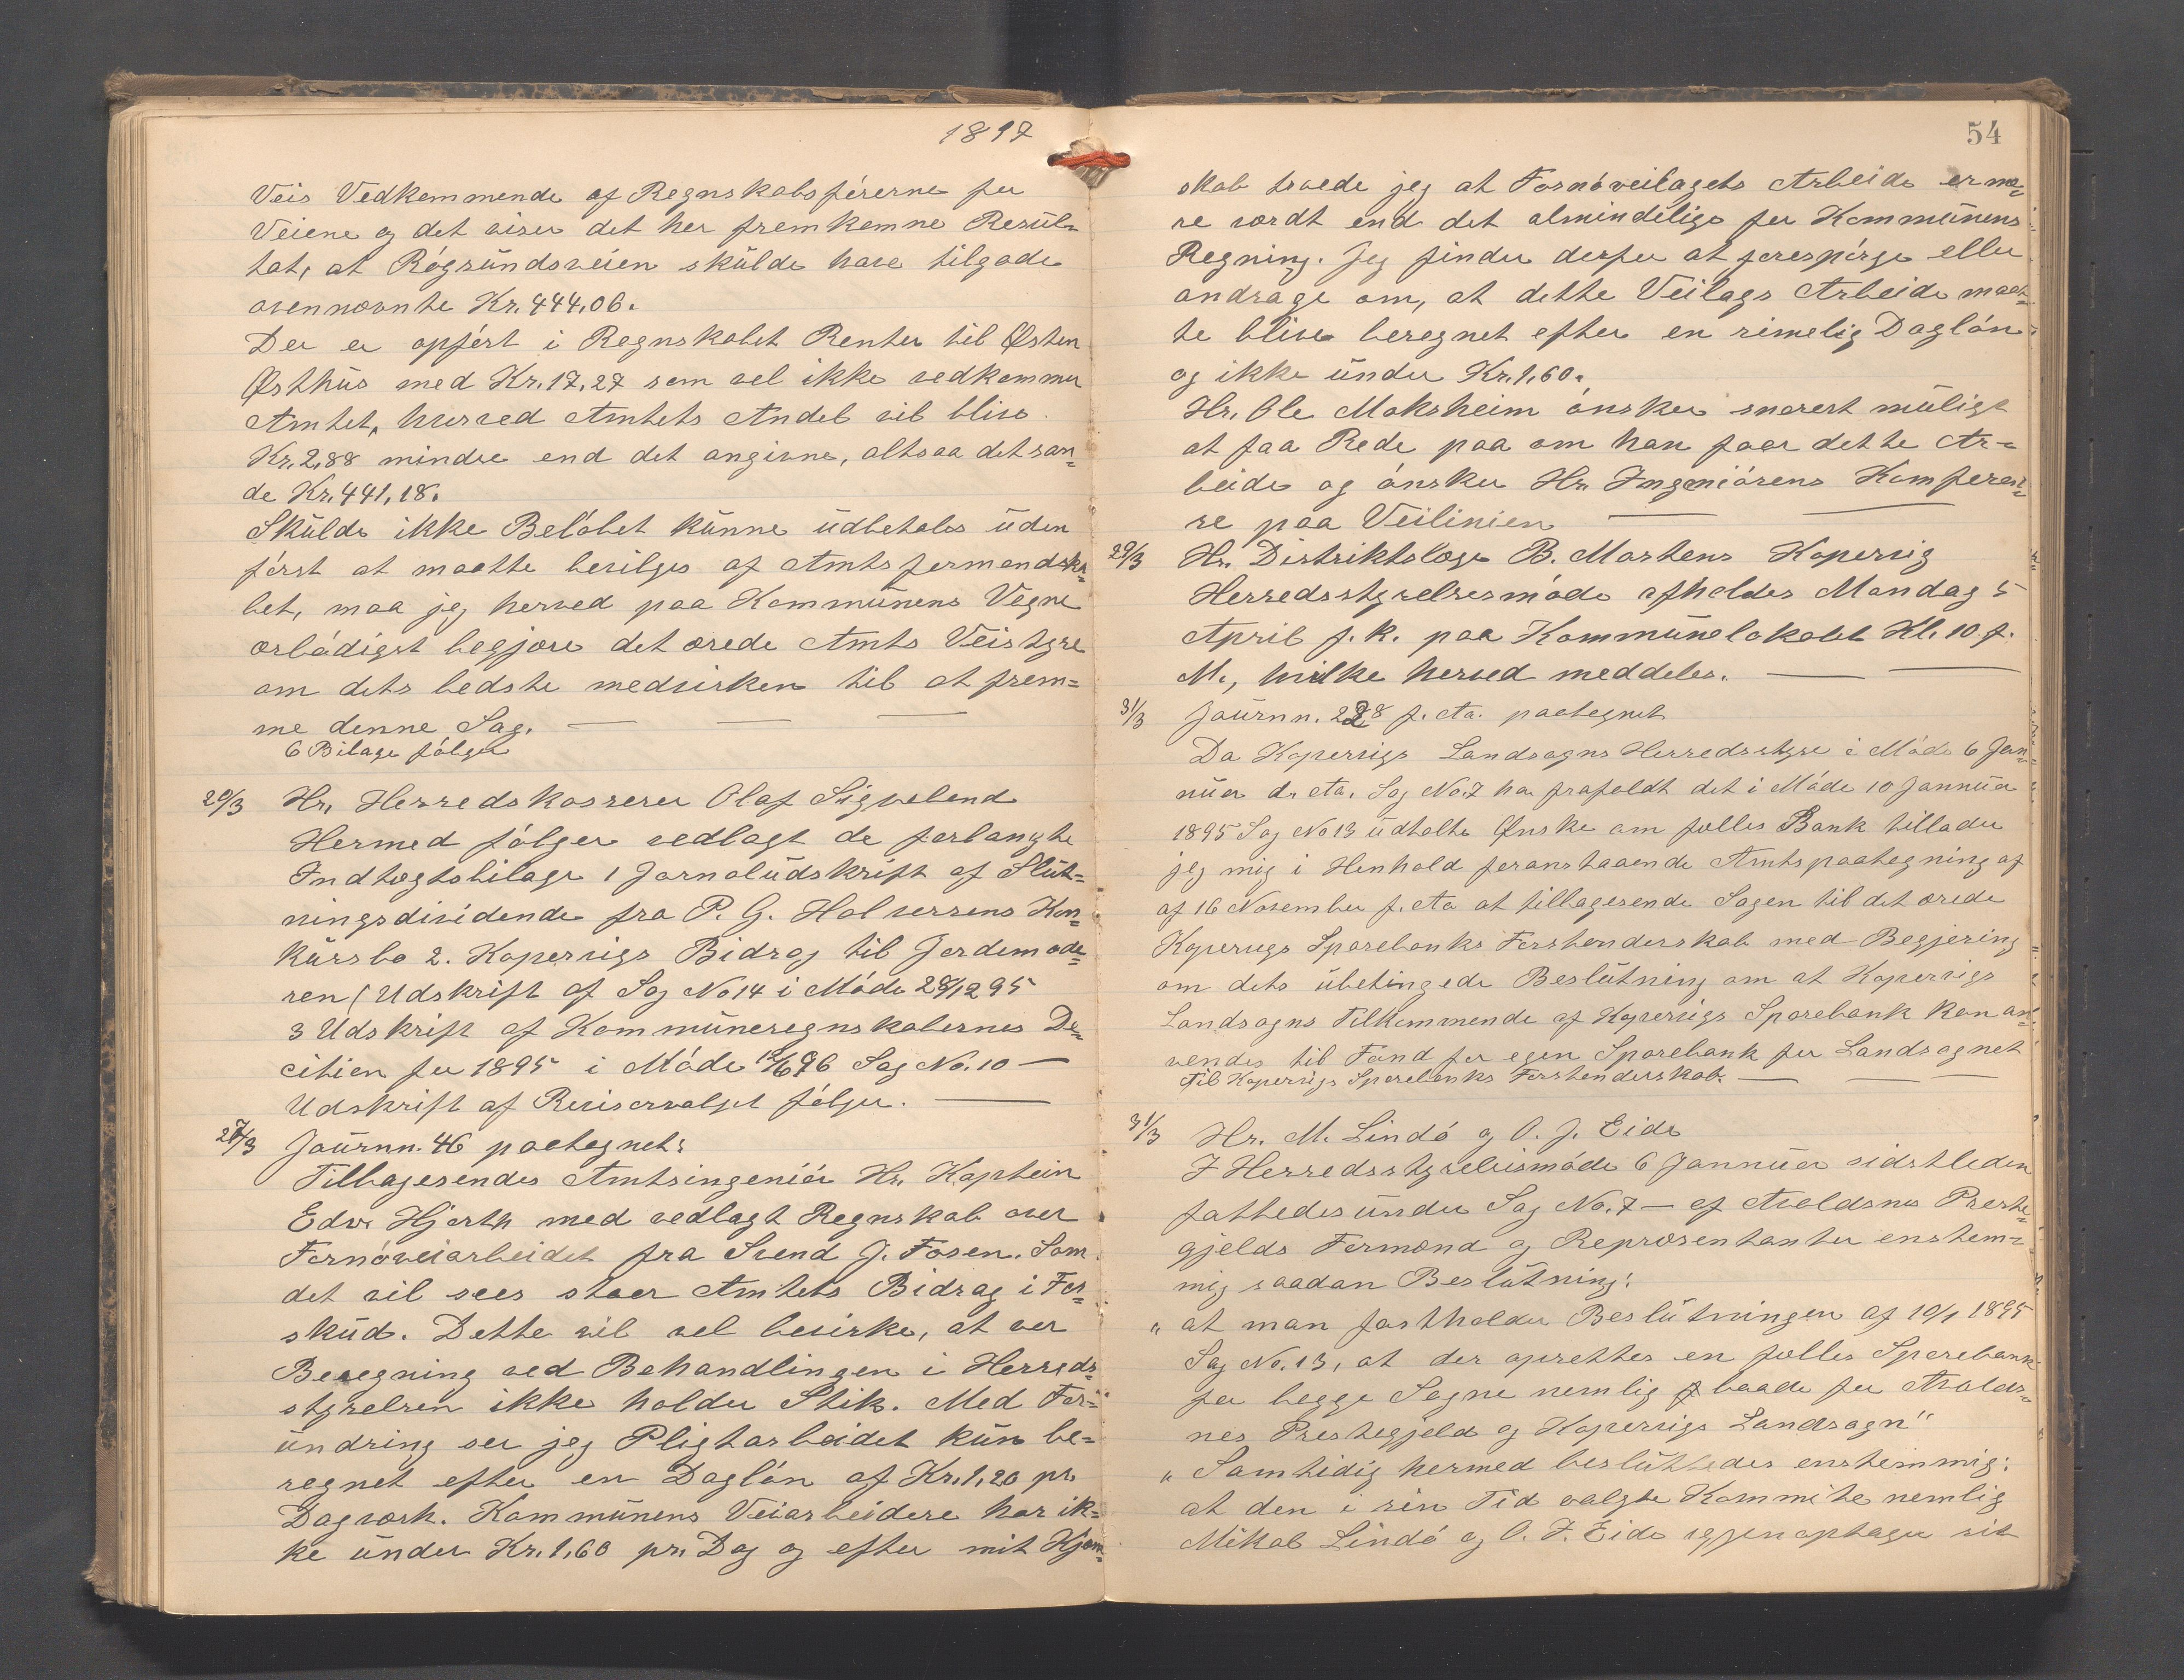 1897
Veis Vedkommende af Regnskabsførerne for
Veiene og det viser det her fremkomne Resul-
tat, at Røgsundsveien skulde have tilgode
ovennævnte Kr. 444,06.
Der er opført i Regnskabet Renter til Østen
Østhus med Kr. 17,27 som vel ikke vedkommer
Amtet, hvorved Amtets Andel vil blive
Kr. 2,88 mindre end det angivne, altsaa det san-
de Kr. 441,18.
Skulde ikke Beløbet kunne udbetales uden
først at maatte bevilges af Amtsformandska-
bet, maa jeg herved paa Kommunens Vegne
ærbødigst begjære det ærede Amts Veistyre
om dets bedste medvirken til at frem-
me denne Sag. — — —
6 Bilage følger
29/3 Hr. Herredskasserer Olaf Sigveland
Hermed følger vedlagt de forlangte
Indtægtsbilage 1 Jornaludskrift af Slut-
ningsdividende fra P. G. Halversens Kon-
kursbo 2. Kopervigs Bidrag til Jordemode-
ren (Udskrift af Sag No 14 i Møde 28/12 95
3 Udskrift af Kommuneregnskabernes De-
citien for 1895 i Møde 12/6 96 Sag No. 10 —
Udskrift af Revisorvalget følger. —
27/3 Journn. 46 paategnet:
Tilbagesendes Amtsingeniør Hr. Kaptein
Edv. Hjorth med vedlagt Regnskab over
Fornøveiarbeidet fra Svend J. Fosen. Som
det vil sees staar Amtets Bidrag i For-
skud. Dette vil vel bevirke, at vor
Beregning ved Behandlingen i Herreds-
styrelsen ikke holder Stik. Med For-
undring ser jeg Pligtarbeidet kun be-
regnet efter en Dagløn af Kr. 1,20 pr.
Dagværk. Kommunens Veiarbeidere har ik-
ke under Kr. 1,60 pr. Dag og efter mit Kjen-
54
skab troede jeg at Fornøveilagets Arbeide er me-
re værdt end det almindelige for Kommunens
Regning. Jeg finder derfor at forespørge eller
andrage om, at dette Veilags Arbeide maat-
te blive beregnet efter en rimelig Dagløn
og ikke under Kr. 1,60.
Hr. Ole Maksheim ønsker snarest muligt
at faa Rede paa om han faar dette Ar-
beide og ønsker Hr. Ingeniørens Komferen-
se paa Veilinien — —
29/3 Hr. Distriktslæge B. Martens Kopervig
Herredsstyrelsesmøde afholdes Mandag 5
April f. k. paa Kommunelokalet Kl. 10 f.
M., hvilke herved meddeles. —
31/3 Journn. 228 f. Aa. paategnet
Da Kopervigs Landsogns Herredsstyre i Møde 6 Jan-
nuar d. Aa. Sag No. 7 har frafaldt det i Møde 10 Jannuar
1895 Sag No 13 udtalte Ønske om fælles Bank tillader
jeg mig i Henhold foranstaaende Amtspaategning af
af 16 November f. Aa at tilbagesende Sagen til det ærede
Kopervigs Sparebanks Forstanderskab med Begjering
om dets ubetingede Beslutning om at Kopervigs
Landsogns Tilkommende af Kopervigs Sparebank kan an-
vendes til Fond for egen Sparebank for Landsognet
Til Kopervigs Sparebanks Forstanderskab. — — —
31/3 Hr. M. Lindø og O. J. Eide
I Herredsstyrelsesmøde 6 Jannuar sidstleden
fattedes under Sag No. 7 — af Avaldsnes Preste-
gjelds Formænd og Repræsentanter enstem-
mig saadan Beslutning:
" at man fastholder Beslutningen af 10/1 1895
Sag No. 13, at der oprettes en fælles Sparebank
for begge Sogne nemlig baade for Avalds-
nes Prestegjeld og Kopervigs Landsogn"
" Samtidig hermed besluttedes enstemmig:
at den i sin Tid valgte Kommite nemlig
Mikal Lindø og O. J. Eide igjenoptager sit